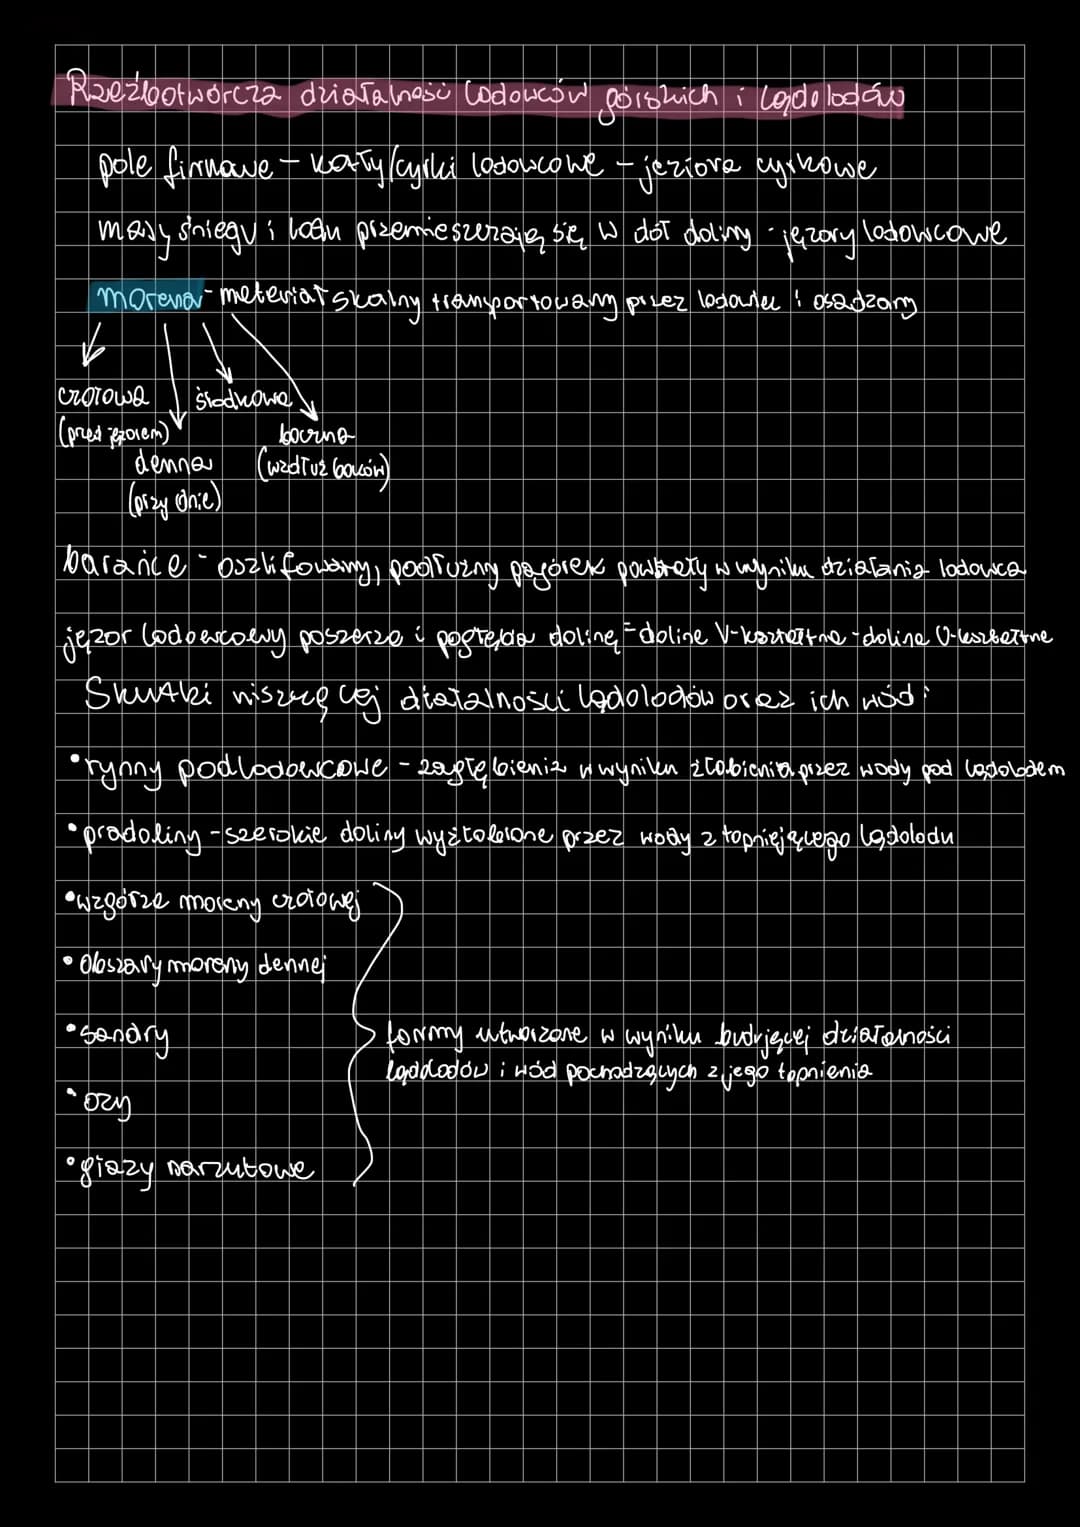 Rzeźbotwórcza działalność lodowców górskich i lądolodów
pole firnowe – kary/cyrki lodowcowe – jeziora cyrkowe
masy śniegu i lodu przemieszczają się w dół doliny - jęzory lodowcowe
morena - materiał skalny transportowany przez lodowiec i osadzany
czołowa
środkowa
(przed jęzorem)
boczna
denna
(wzdłuż boków)
(przy dnie)
barańce - oszlifowany, podłużny pagórek powstały w wyniku działania lodowca
jęzor lodowcowy poszerza i pogłębia dolinę = dolina V-kształtna - dolina U-kształtna
Skutki niszczącej działalności lądolodów oraz ich wód:
• rynny podlodowcowe - zagłębienia w wyniku żłobienia przez wody pod lądolodem
• pradoliny - szerokie doliny wyżłobione przez wody z topniejącego lądolodu
• wzgórza moreny czołowej
• Obszary moreny dennej
• sandry
formy utworzone w wyniku budującej działalności
lądolodów i wód pochodzących z jego topnienia
• ozy
• głazy narzutowe